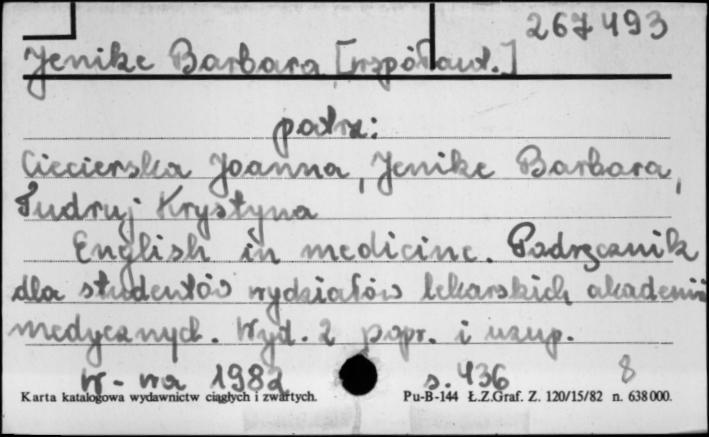 267493
Jenike Barbara [współaut.]
patrz:
Ciecierska Joanna, Jenike Barbara,
Tudruj Krystyna
English in medicine. Podręcznik
dla studentów wydziałów lekarskich akademii
medycznych. Wyd. 2 popr. i uzup.
W-wa 1982 s. 436 8
Karta katalogowa wydawnictw ciągłych i zwartych. Pu-B-144 Ł.Z.Graf. Z. 120/15/82 n. 638 000.